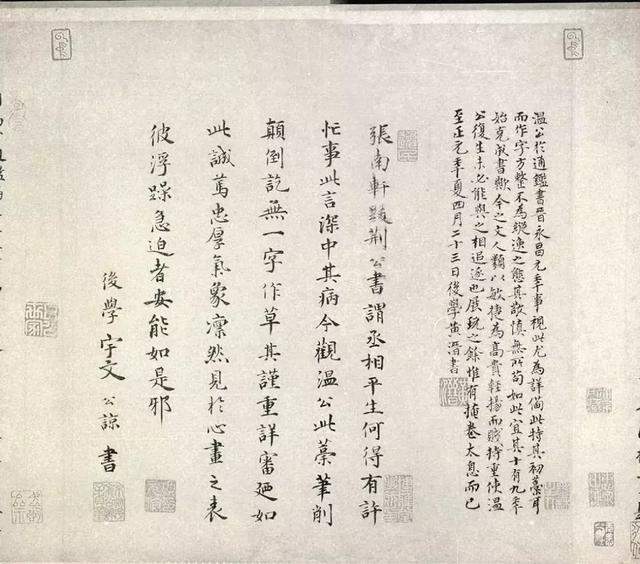 溫公於通鑑書晉永昌元年事視此尤為詳備此特其初藁耳
而作字方整不為縱逸之態其敬慎無所苟如此宜其十有九年
始克成書歟今之文人類以敏捷為高貴輕揚而賤持重使溫
公復生未必能與之相追逐也展玩之餘惟有掩卷太息而已
至正元年夏四月二十三日後學黃溍書
張南軒跋荊公書謂丞相平生何得有許
忙事此言深中其病今觀溫公此藁筆削
顛倒訖無一字作草其謹重詳審廼如
此誠篤忠厚氣象凜然見於心畫之表
彼浮躁急迫者安能如是邪
後學宇文公諒書